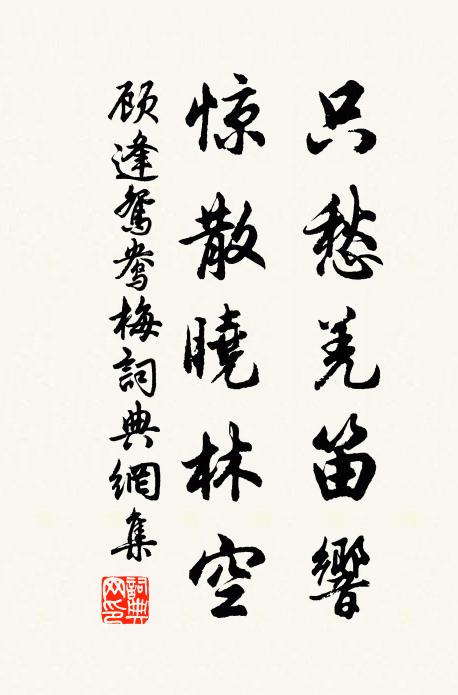 只愁羌笛響
惊散曉林空
顾逢鴛鴦梅詞典網集
詞典网印